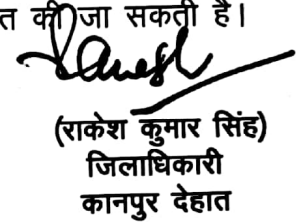 त की जा सकती है।
(राकेश कुमार सिंह)
जिलाधिकारी
कानपुर देहात